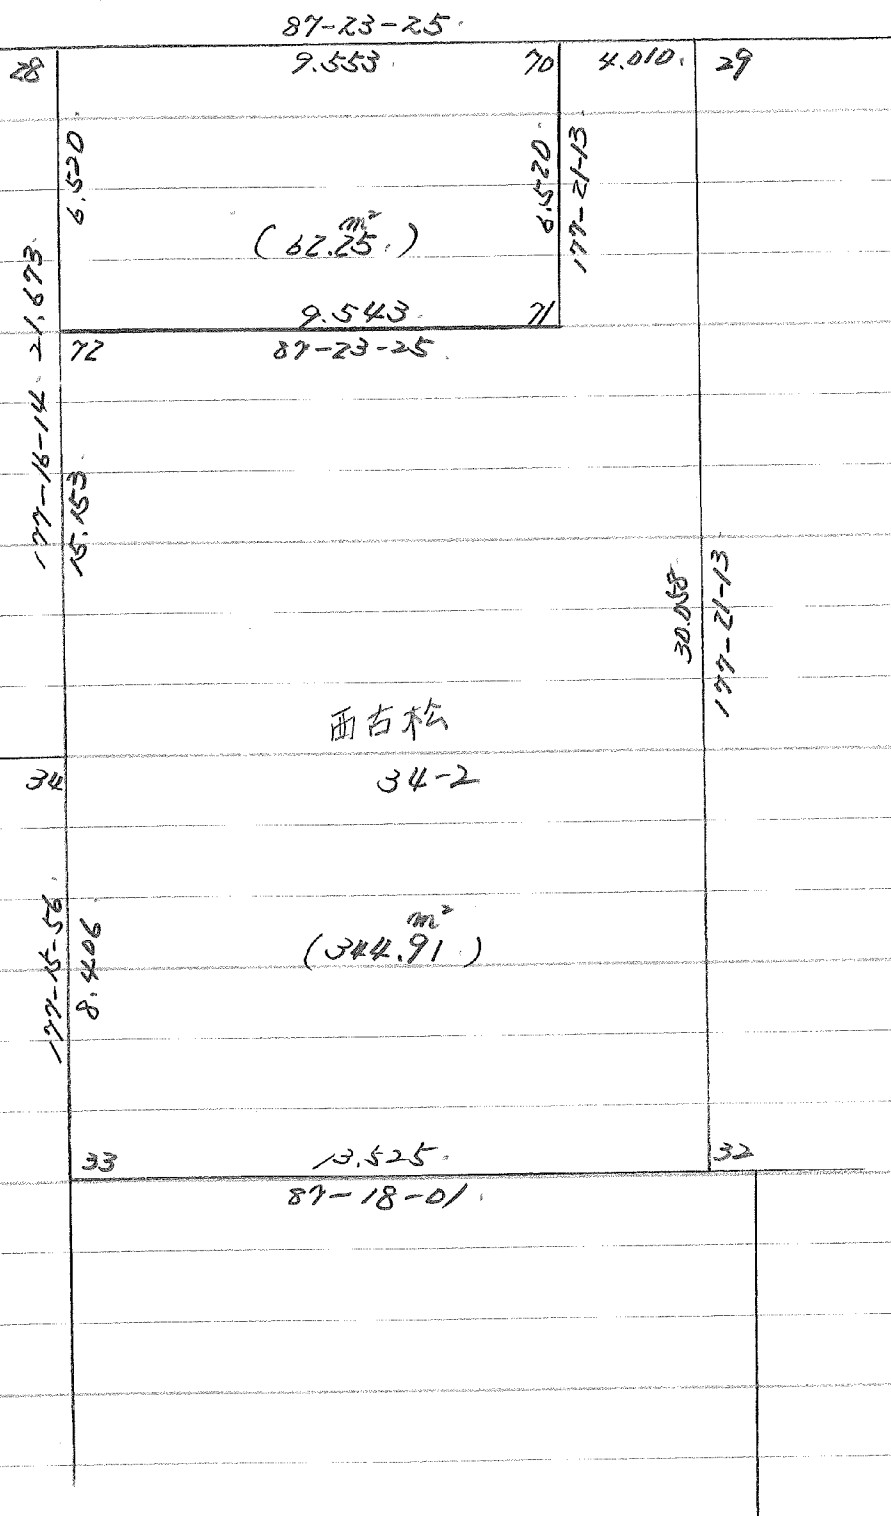 87-23-25.
28
9.553.
70
4.010.
29
6.520.
6.520.
177-21-13
m²
(62.25.)
177-16-14 21.673.
9.543.
71
72
87-23-25.
15.153.
30.058.
177-21-13
西古松
34
34-2
177-15-56.
8.406
m²
(344.91.)
33
13.525.
32
87-18-01.